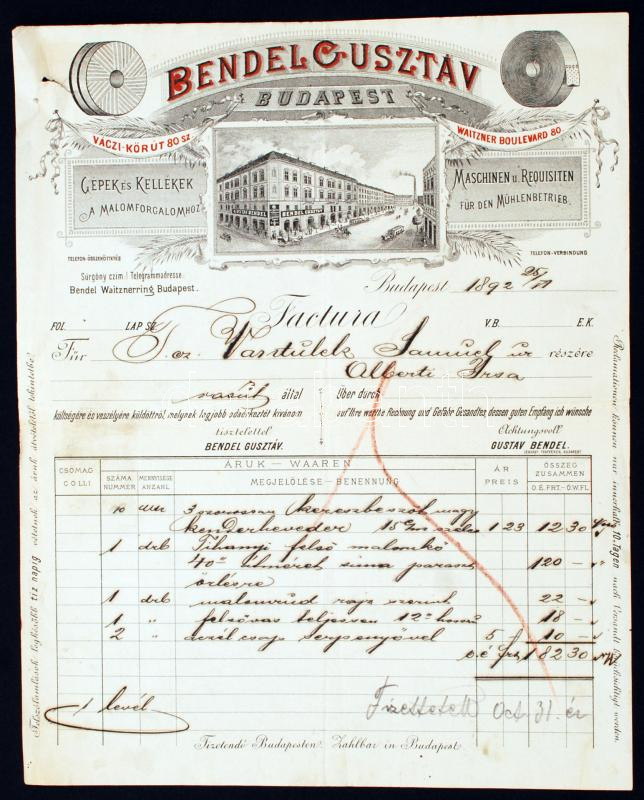 BENDEL GUSZTÁV
BUDAPEST
VÁCZI-KÖRÚT 80 SZ.
WAITZNER BOULEWARD 80.
GÉPEK ÉS KELLÉKEK
A MALOMFORGALOMHOZ
MASCHINEN U. REQUISITEN
FÜR DEN MÜHLENBETRIEB.
BENDEL GUSZTÁV
TELEFON-ÖSSZEKÖTTETÉS
TELEFON-VERBINDUNG
Sürgöny czim: Telegrammadresse:
Bendel Waitznerring Budapest.
Budapest 1892
Factura
FOL. LAP SZ. V.B. E.K.
Für Samuel úr részére
Alberti Irsa
vasút által Über durch
költségére és veszélyére küldöttről, melynek legjobb odaérkeztét kivánom
auf Ihre werthe Rechnung und Gefahr Gesandtes, dessen guten Empfang ich wünsche
tisztelettel
Achtungsvoll
BENDEL GUSZTÁV.
GUSTAV BENDEL.
ÁRUK — WAAREN
CSOMAG COLLI
SZÁMA NUMMER
MENNYISÉGE ANZAHL
MEGJELÖLÉSE – BENENNUNG
ÁR PREIS
ÖSSZEG ZUSAMMEN
O.É.FRT.-Ö.W.FL.
10 3
kenderheveder 15 1 23 12 30
1 drb Tihanyi felső malomkő
40" sima 120 –
őrlésre
1 drb rajz szerint 22 –
1 " teljesen 12" 18 –
2 " 5 10 –
o.é frt 182 30
1 levél
Fizettetett Oct 31. én
Fizetendő Budapesten. Zahlbar in Budapest.
Felszólamlások legkésőbb tiz napig vétetnek az áruk átvételétől tekintetbe.
Reclamationen können nur innerhalb 10 Tagen nach Versandt berücksichtigt werden.